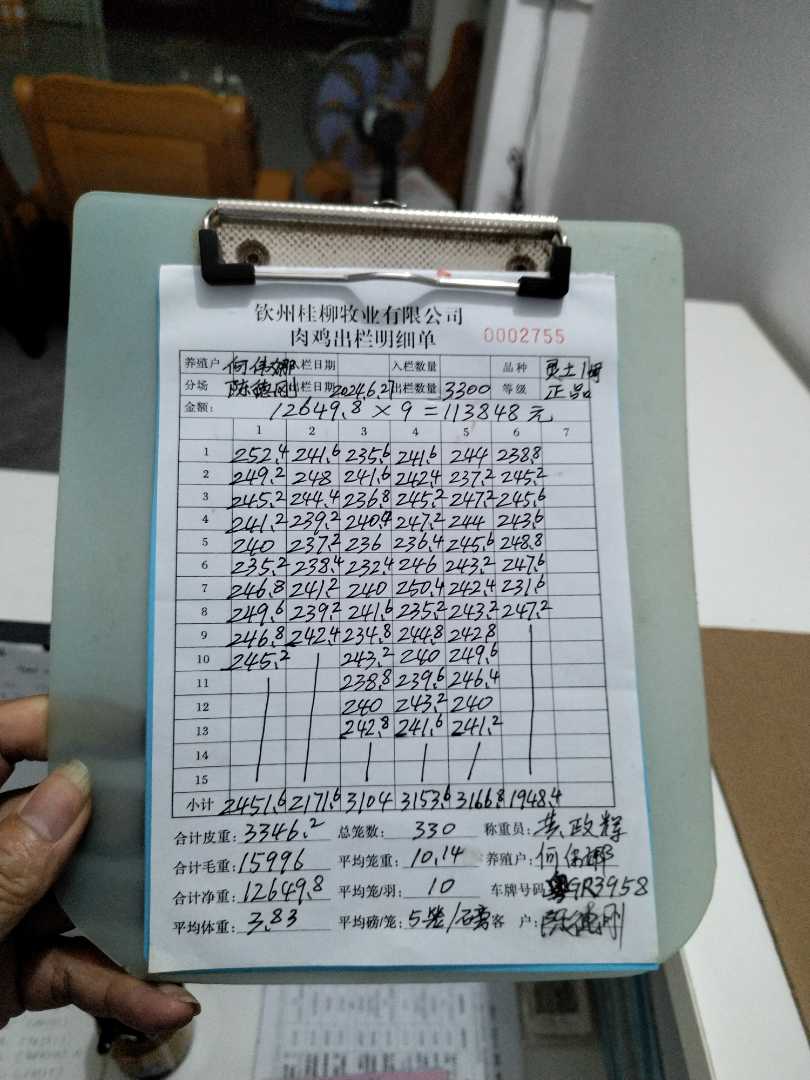 钦州桂柳牧业有限公司
肉鸡出栏明细单 0002755
养殖户 何伟娜 入栏日期 入栏数量 品种 灵土1号
分场 陈德刚 出栏日期 2024.6.27 出栏数量 3300 等级 正品
金额: 12649.8 × 9 = 113848 元
1 2 3 4 5 6 7
1 252.4 241.6 235.6 241.6 244 238.8
2 249.2 248 241.6 242.4 237.2 245.2
3 245.2 244.4 236.8 245.2 247.2 245.6
4 241.2 239.2 240.4 247.2 244 243.6
5 240 237.2 236 236.4 245.6 248.8
6 235.2 238.4 232.4 246 243.2 247.6
7 246.8 241.2 240 250.4 242.4 231.6
8 249.6 239.2 241.6 235.2 243.2 247.2
9 246.8 242.4 234.8 244.8 242.8
10 245.2 243.2 240 249.6
11 238.8 239.6 246.4
12 240 243.2 240
13 242.8 241.6 241.2
14
15
小计 2451.6 2171.6 3104 3153.6 3166.8 1948.4
合计皮重: 3346.2 总笼数: 330 称重员: 黄政辉
合计毛重: 15996 平均笼重: 10.14 养殖户: 何伟娜
合计净重: 12649.8 平均笼/羽: 10 车牌号码 粤GR3958
平均体重: 3.83 平均磅/笼: 5笼/磅 客 户: 陈德刚